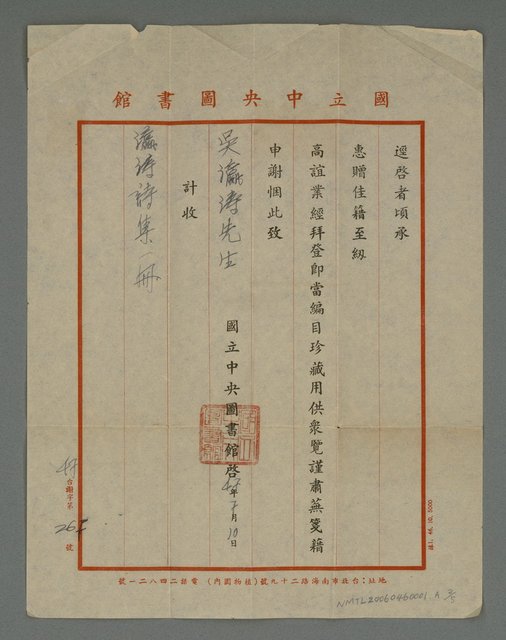 國立中央圖書館
逕啓者頃承
惠贈佳籍至紉
高誼業經拜登即當編目珍藏用供衆覽謹肅蕪箋藉
申謝悃此致
吳瀛濤先生
計收
瀛濤詩集一冊
國立中央圖書館啓
年 月10日
台謝字第
號
地址:台北市南海路二十九號(植物園內) 電話二四八二一號
NMTL20060460001